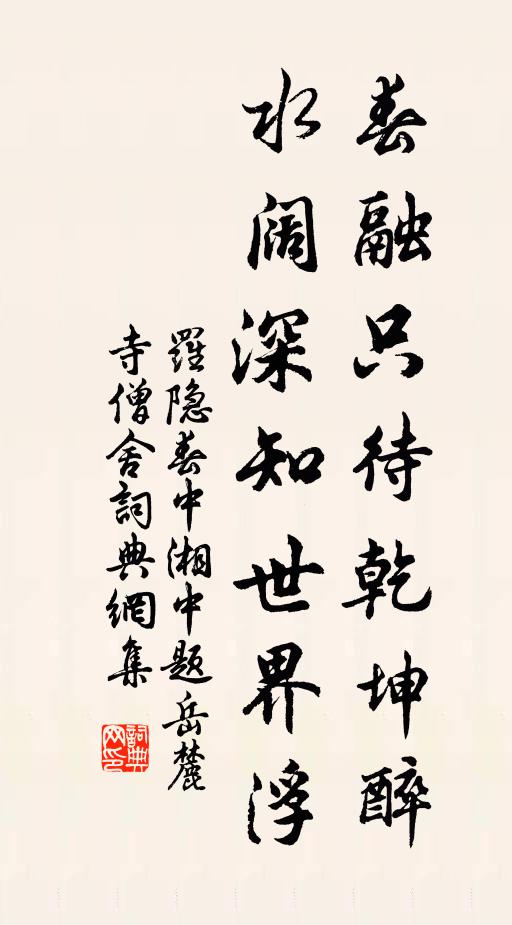 春融只待乾坤醉
水阔深知世界浮
羅隐春中湘中题岳麓
寺僧舍詞典網集
詞典网印